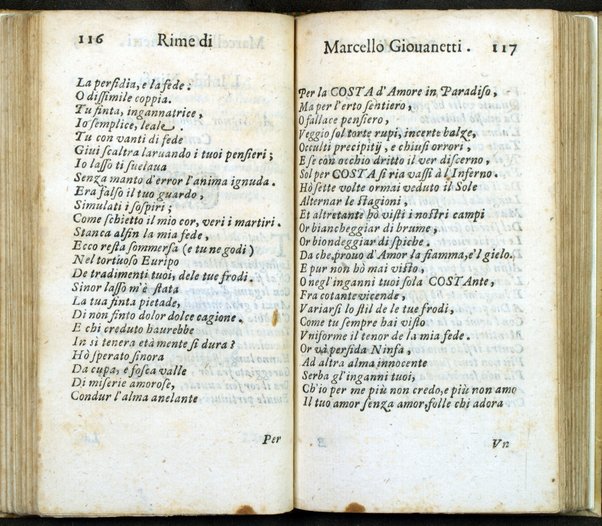 116 Rime di
La perfidia, e la fede.
O dissimile coppia.
Tu finta, ingannatrice,
Io semplice, leale
Tu con vanti di fede
Giui scaltra laruando i tuoi pensieri;
Io lasso ti suelaua
Senza manto d'error l'anima ignuda.
Era falso il tuo guardo,
Simulati i sospiri;
Come schietto il mio cor, veri i martiri.
Stanca alfin la mia fede,
Ecco resta sommersa (e tu ne godi)
Nel tortuoso Euripo
De tradimenti tuoi, dele tue frodi.
Sinor lasso m'è stata
La tua finta pietade,
Di non finto dolor dolce cagione.
E chi creduto haurebbe
In sì tenera età mente sì dura?
Hò sperato sinora
Da cupa, e fosca valle
Di miserie amorose,
Condur l'alma anelante
Per
Marcello Giouanetti. 117
Per la COSTA d'Amore in Paradiso,
Ma per l'erto sentiero,
O fallace pensiero,
Veggio sol torte rupi, incerte balze,
Occulti precipitij, e chiusi orrori,
E se con occhio dritto il ver discerno,
Sol per COSTA si ria vassi à l'Inferno.
Hò sette volte ormai veduto il Sole
Alternar le stagioni,
Et altretante hò visti i nostri campi
Or biancheggiar di brume,
Or biondeggiar di spiche.
Da che prouo d'Amor la fiamma, e'l gielo.
E pur non hò mai visto,
O negl'inganni tuoi sola COSTAnte,
Fra cotante vicende,
Variarsi lo stil de le tue frodi,
Come tu sempre hai visto
Vniforme il tenor de la mia fede.
Or và perfida Ninfa,
Ad altra alma innocente
Serba gl'inganni tuoi,
Ch'io per me più non credo, e più non amo
Il tuo amor senza amor, folle chi adora
Vn